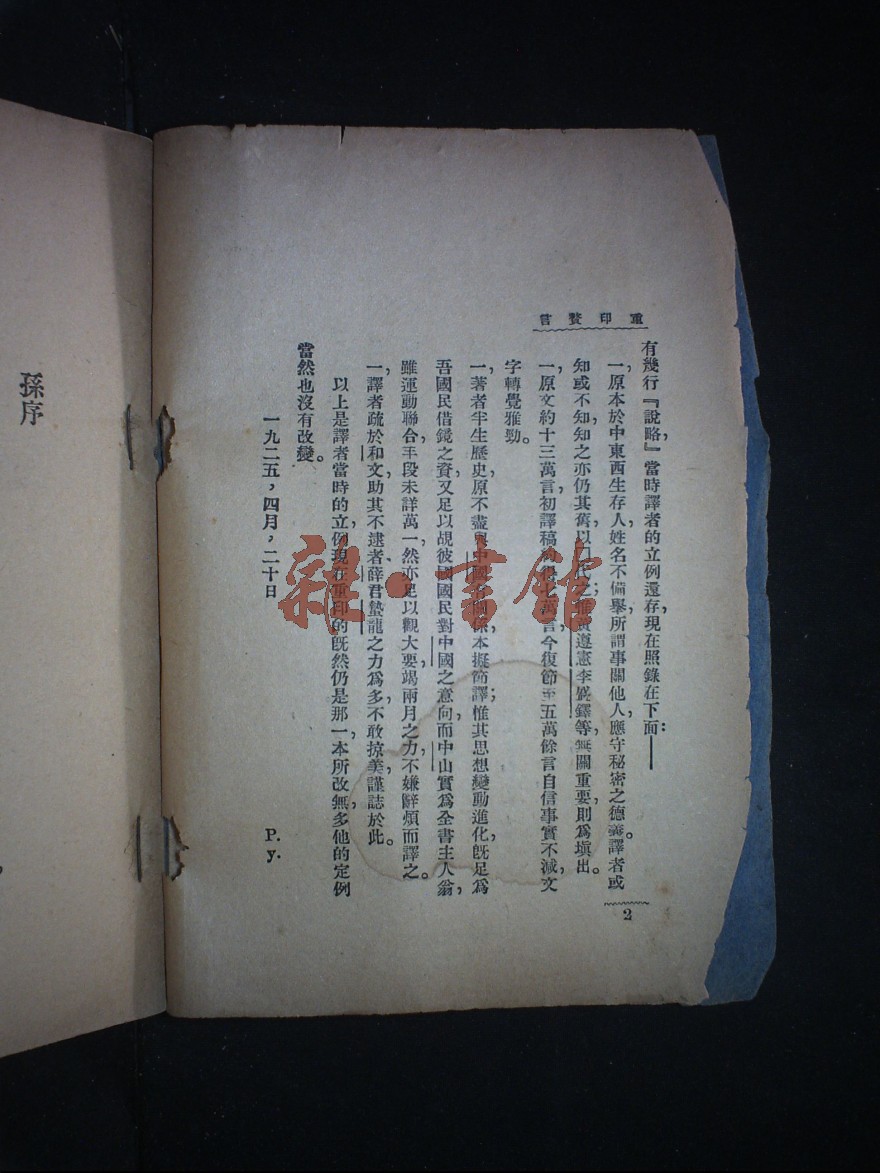 重印贅言
有幾行『說略』，當時譯者的立例還存，現在照錄在下面：——
一，原本於中東西生存人，姓名不備舉，所謂事關他人，應守秘密之德義。譯者或
知或不知，知之亦仍其舊，以囗氏之；惟黃遵憲李盛鐸等，無關重要，則爲塡出。
一，原文約十三萬言，初譯稿 七萬言，今復節至五萬餘言，自信事實不減，文
字轉覺雅勁。
一，著者半生歷史，原不盡與中國有關係，本擬節譯；惟其思想變動進化，旣足爲
吾國民借鏡之資，又足以覘彼國國民對中國之意向，而中山實爲全書主人翁，
雖運動聯合，手段未詳萬一，然亦足以觀大要，竭兩月之力，不嫌辭煩而譯之。
一，譯者疏於和文，助其不逮者，薛君蟄龍之力爲多，不敢掠美，謹誌於此。
以上是譯者當時的立例，現在重印的旣然仍是那一本，所改無多，他的定例
當然也沒有改變。
一九二五，四月，二十日
P. y.
2
孫序
雜·書館